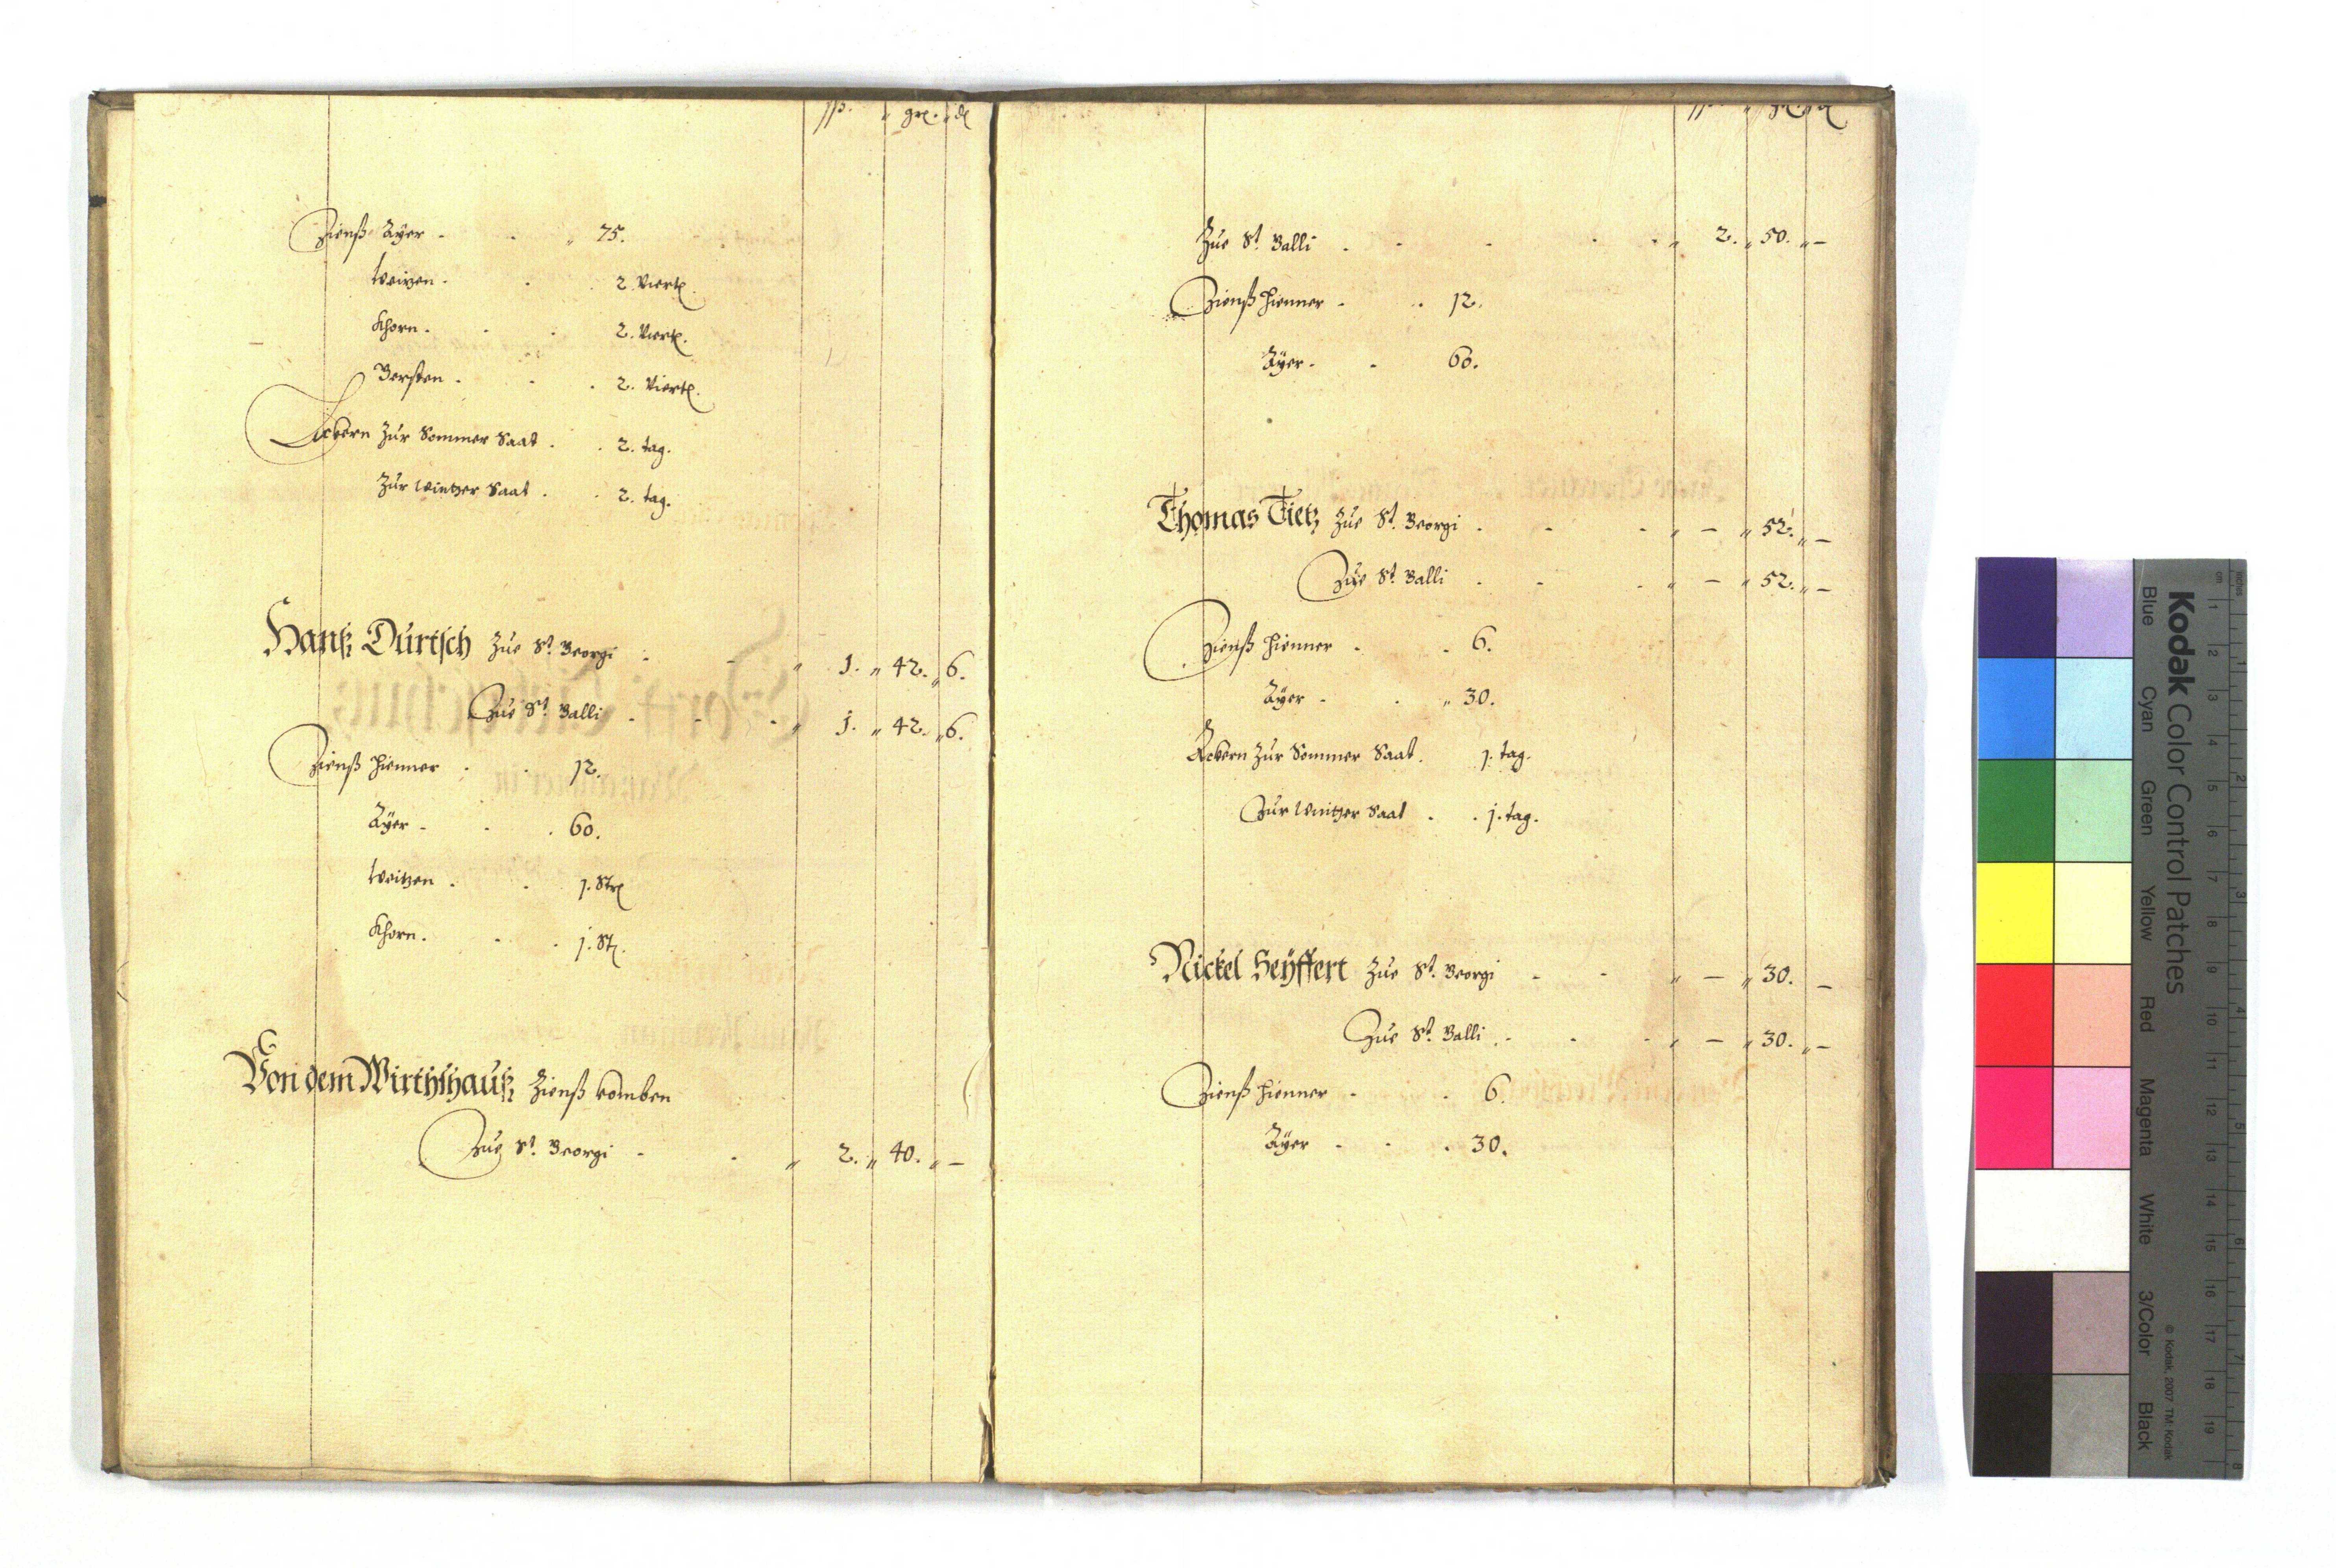 ßß. gr. d
Zienß Ayer . . 75.
Weitzen . . 2. Viertl.
Khorn . . . 2. Viertl.
Gersten . . . 2. Viertl.
Ackern Zur Sommer Saat . . 2. tag.
Zur Winther Saat . . 2. tag.
Hanß Dürtsch Zue St. Georgi . . 1. 42. 6.
Zue St. Galli . . . 1. 42. 6.
Zienß Hienner . . 12.
Ayer . . . 60.
Weitzen . . 1. Str
Khorn . . . 1. St.
Von dem Wirthshauß Zienß
Zue St. Georgi . . 2. 40. —
Zue St. Galli . . . . . 2. 50. —
Zienß Hienner . . 12.
Ayer . . 60.
Thomas Tietz Zue St. Georgi . . . — 52. —
Zue St. Galli . . . — 52. —
Zienß Hienner . . 6.
Ayer . . 30.
Ackern Zur Sommer Saat . 1. tag.
Zur Winther Saat . . 1. tag.
Nickel Seÿffert Zue St. Georgi . . — 30. —
Zue St. Galli . . . — 30. —
Zienß Hienner . . 6.
Ayer . . . 30.
Kodak Color Control Patches
© Kodak, 2007 TM: Kodak
Blue Cyan Green Yellow Red Magenta White 3/Color Black
cm 1 2 3 4 5 6 7 8 9 10 11 12 13 14 15 16 17 18 19
inches 1 2 3 4 5 6 7 8